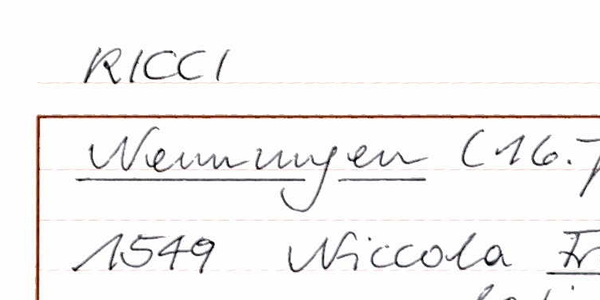 RICCI
Nennungen (16.
1549 Niccola Fr